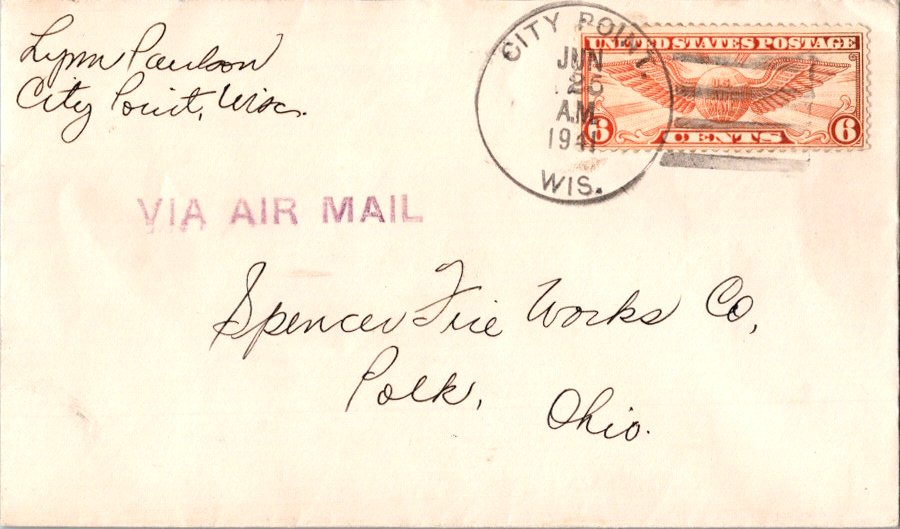 Lynn Paulson
City Point, Wisc.
CITY POINT.
JUN
25
A.M.
1941
WIS.
UNITED STATES POSTAGE
U.S.
6 CENTS 6
VIA AIR MAIL
Spencer Fire Works Co,
Polk, Ohio.